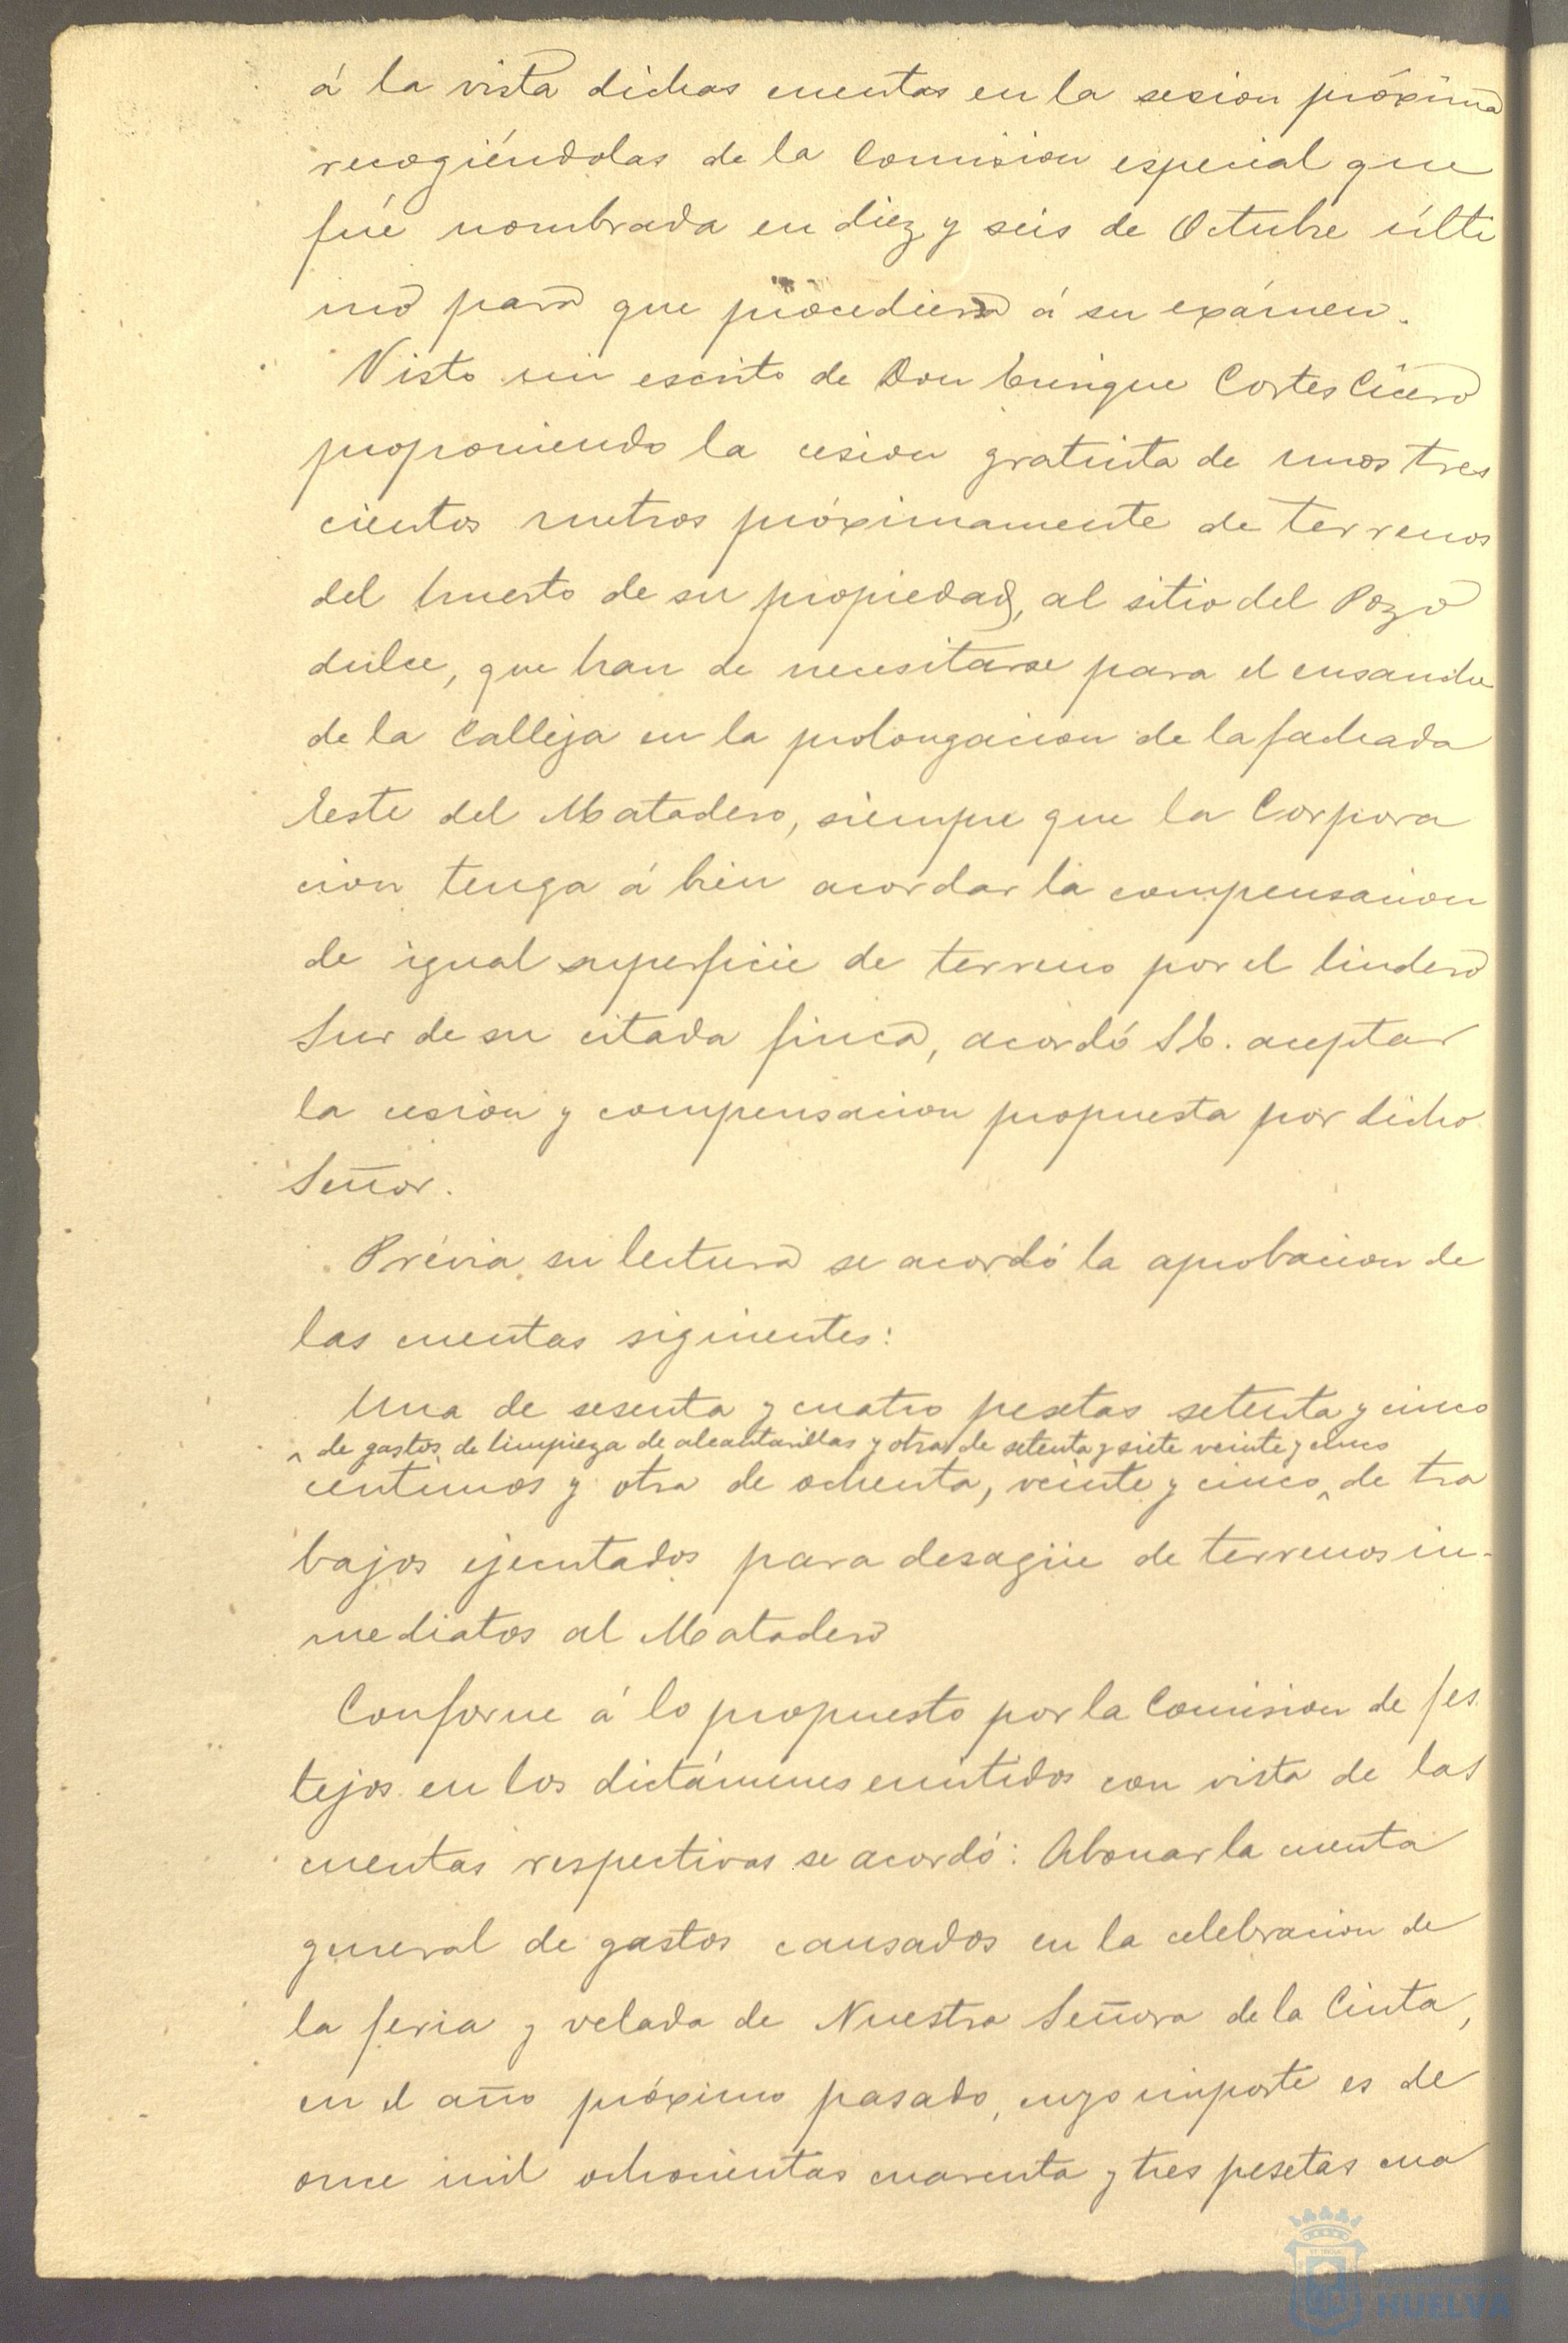 á la vista dichas cuentas en la sesion próxima
recogiéndolas de la Comision especial que
fué nombrada en diez y seis de Octubre últi
mo para que procediera á su exámen.
Visto un escrito de Don Enrique Cortes Cícero
proponiendo la cesion gratuita de unos tres
cientos metros próximamente de terrenos
del huerto de su propiedad, al sitio del Pozo
dulce, que han de necesitarse para el ensanche
de la Calleja en la prolongacion de la fachada
Este del Matadero, siempre que la Corpora
cion tenga á bien acordar la compensacion
de igual superficie de terreno por el lindero
Sur de su citada finca, acordó S.E. aceptar
la cesion y compensacion propuesta por dicho
Señor.
Prévia su lectura se acordó la aprobacion de
las cuentas siguientes:
Una de sesenta y cuatro pesetas setenta y cinco
^ de gastos de limpieza de alcantarillas y otra de setenta y siete veinte y cinco
centimos y otra de ochenta, veinte y cinco ^ de tra
bajos ejecutados para desagüe de terrenos in-
mediatos al Matadero
Conforme á lo propuesto por la Comision de fes
tejos en los dictámenes emitidos con vista de las
cuentas respectivas se acordó: Abonar la cuenta
general de gastos causados en la celebracion de
la feria y velada de Nuestra Señora de la Cinta,
en el año próximo pasado, cuyo importe es de
once mil ochocientas cuarenta y tres pesetas cua
HUELVA